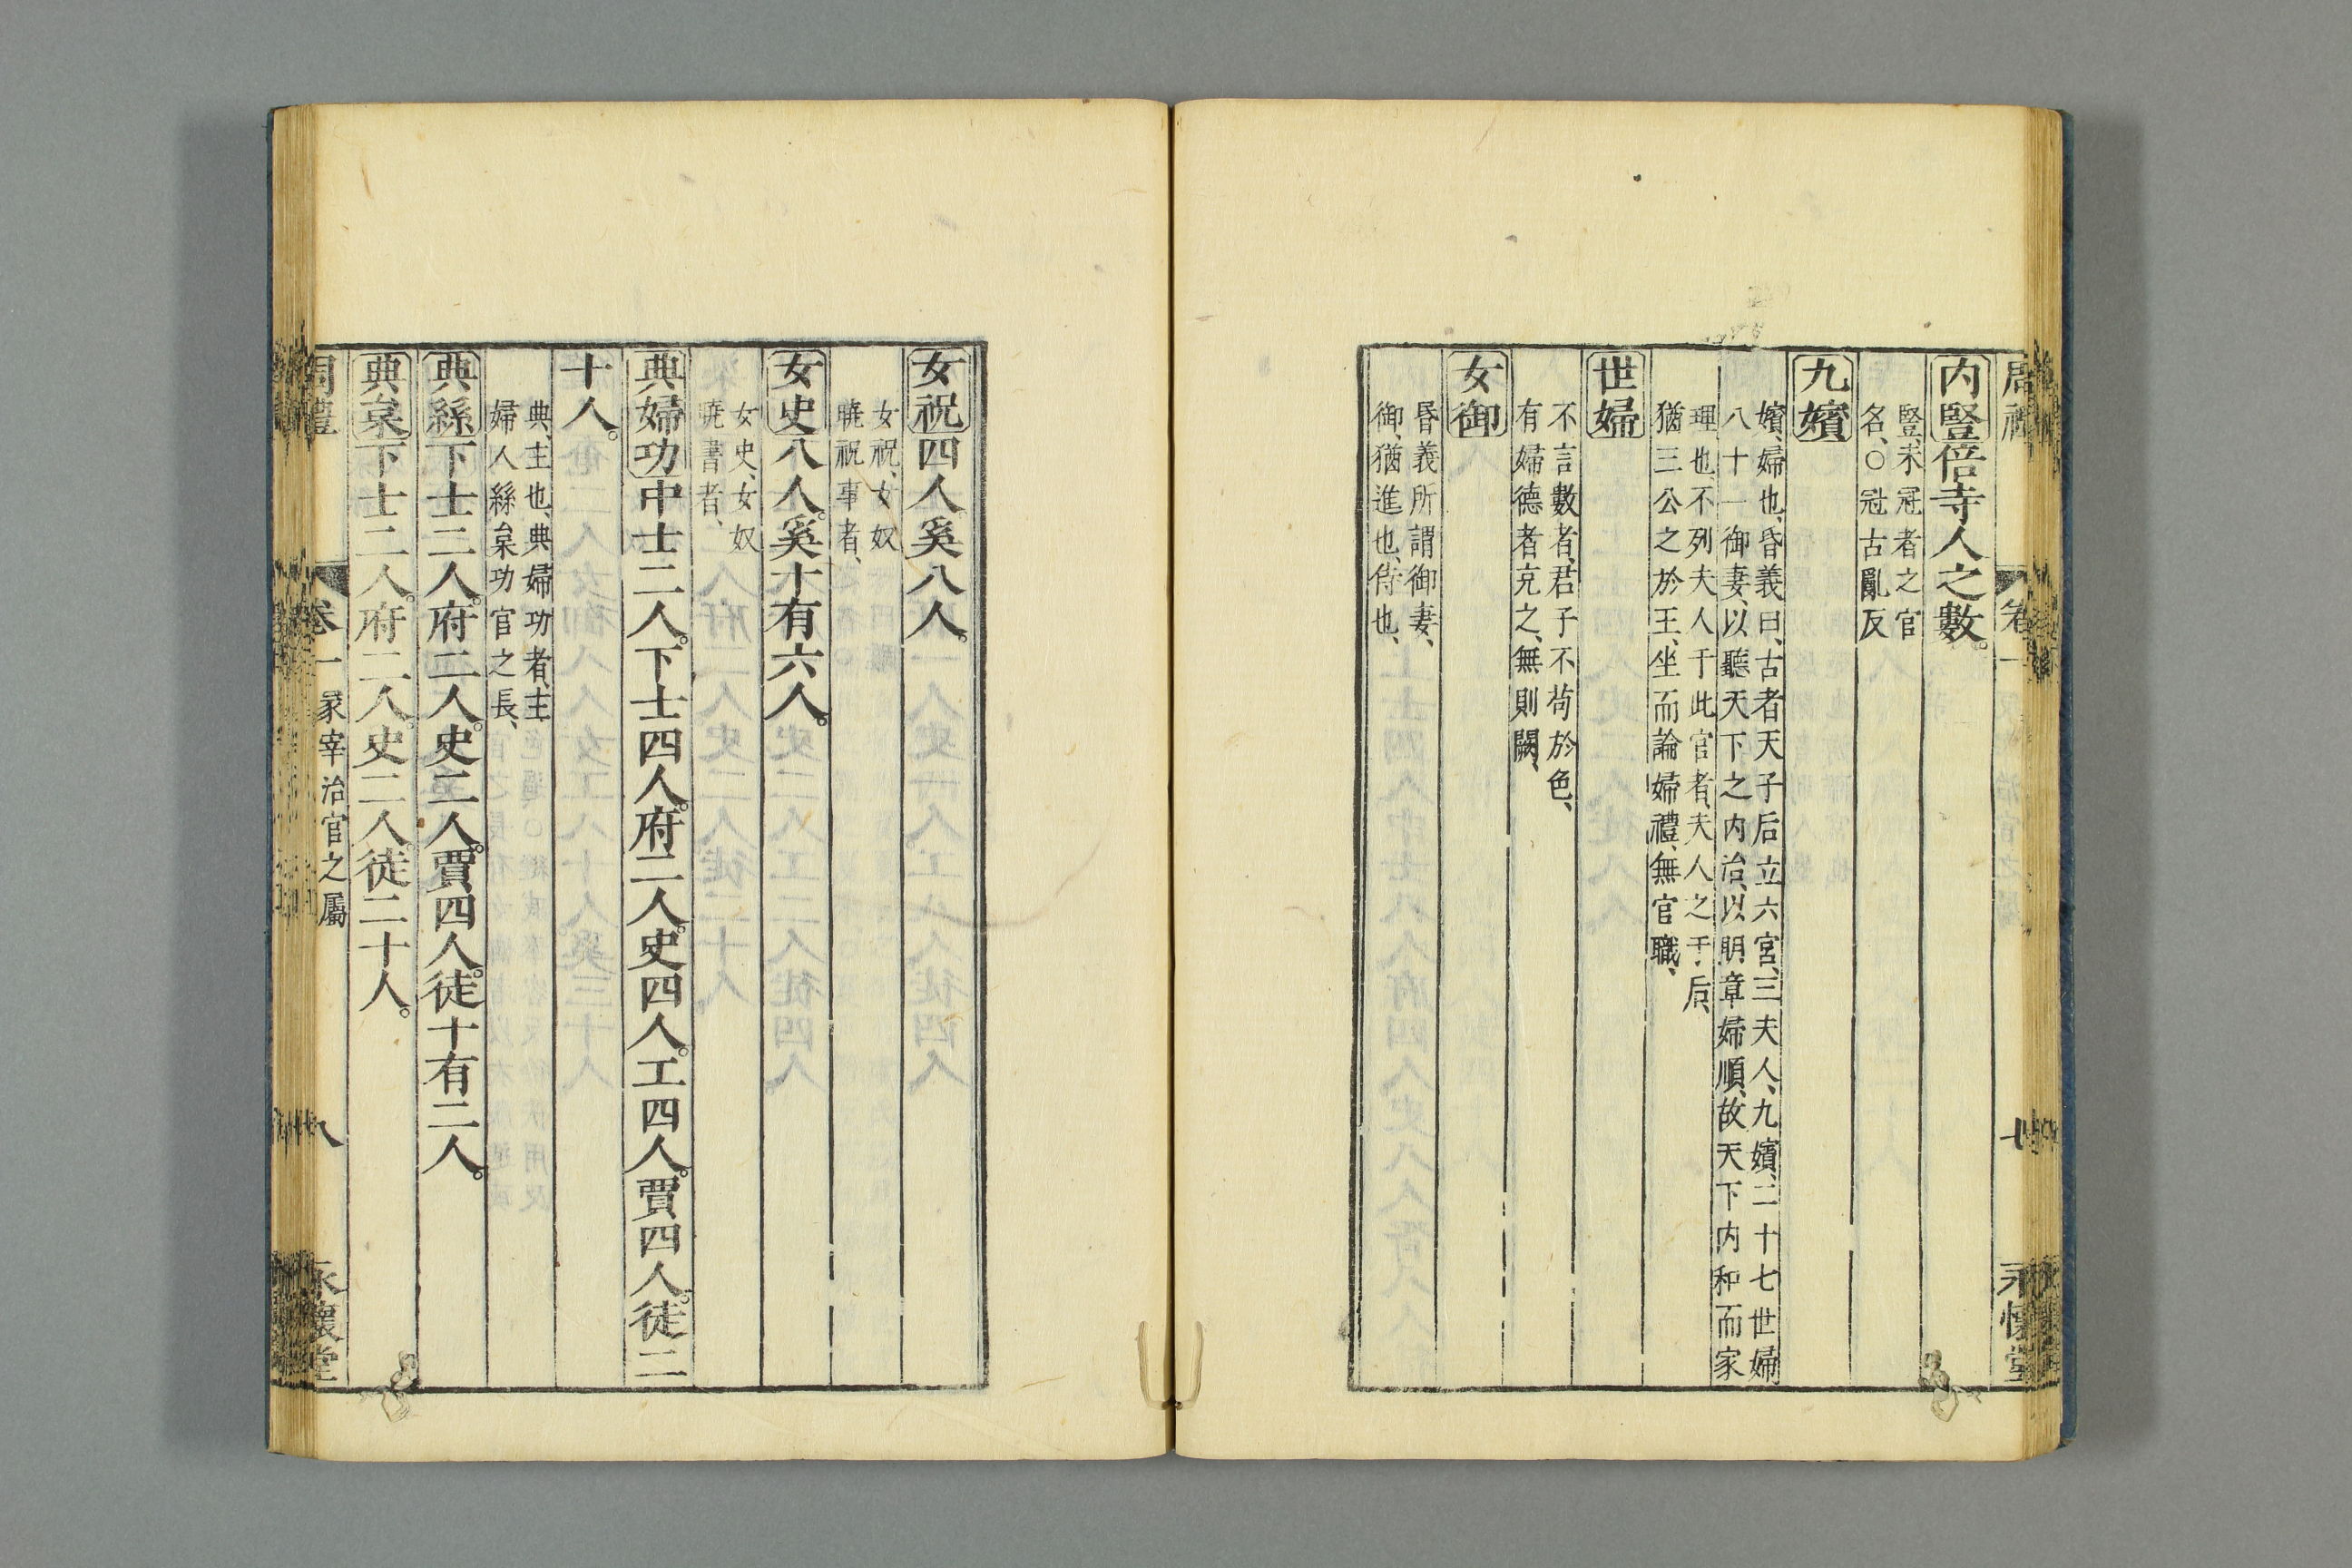 周禮 卷一 七 永懷堂
内豎倍寺人之數。
豎、未冠者之官
名、○冠古亂反
九嬪
嬪、婦也、昏義曰、古者天子后立六宮、三夫人、九嬪、二十七世婦
八十一御妻、以聽天下之内治、以明章婦順、故天下内和而家
理也、不列夫人于此官者、夫人之于后、
猶三公之於王、坐而論婦禮、無官職、
世婦
不言數者、君子不苟於色、
有婦德者充之、無則闕、
女御
昏義所謂御妻、
御、猶進也、侍也、
女祝四人奚八人。
女祝、女奴
曉祝事者、
女史八人奚十有六人。
女史、女奴
曉書者、
典婦功中士二人。下士四人。府二人。史四人。工四人。賈四人。徒二
十人。
典、主也、典婦功者、主
婦人絲枲功官之長、
典絲下士二人。府二人。史二人。賈四人。徒十有二人。
典枲下士二人。府二人。史二人。徒二十人。
周禮 卷一 冢宰治官之屬 八 永懷堂